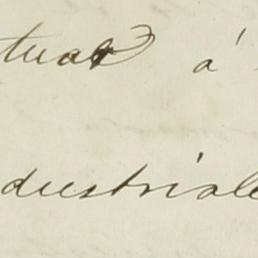 tual á
dustriale